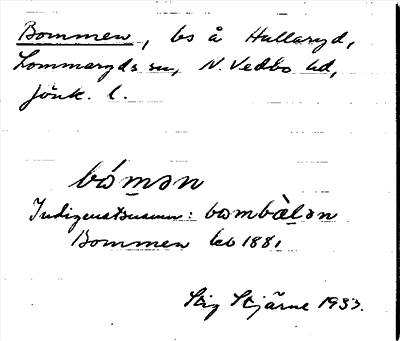 Bommen, ls å Hullaryd,
Lommaryds sn, N. Vedbo hd,
Jönk. l.
bómən
Indigenatsnamn: bombàlən
Bommen leb 1881
Stig Stjärne 1933.